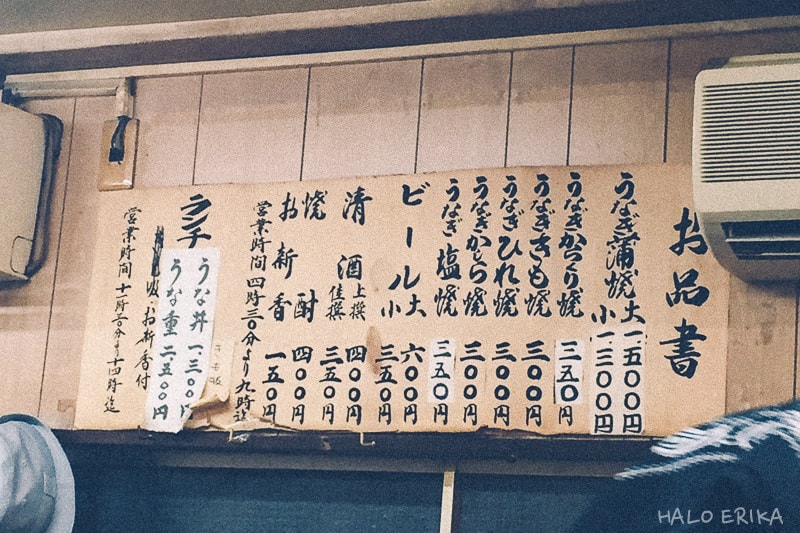 お品書
うなぎ蒲焼大 一、五〇〇円
小 一、二〇〇円
うなぎからくり焼 三五〇円
うなぎきも焼 三〇〇円
うなぎひれ焼 三〇〇円
うなぎかしら焼 三〇〇円
うなぎ塩焼 三五〇円
ビール大 六〇〇円
小 三五〇円
清酒 上撰 四〇〇円
佳撰 三五〇円
焼酎 四〇〇円
お新香 一五〇円
営業時間 四時三〇分より九時迄
ランチ うな丼 一、三〇〇円
うな重 二、五〇〇円
お新香付
営業時間 十一時三〇分より十四時迄
HALO ERIKA